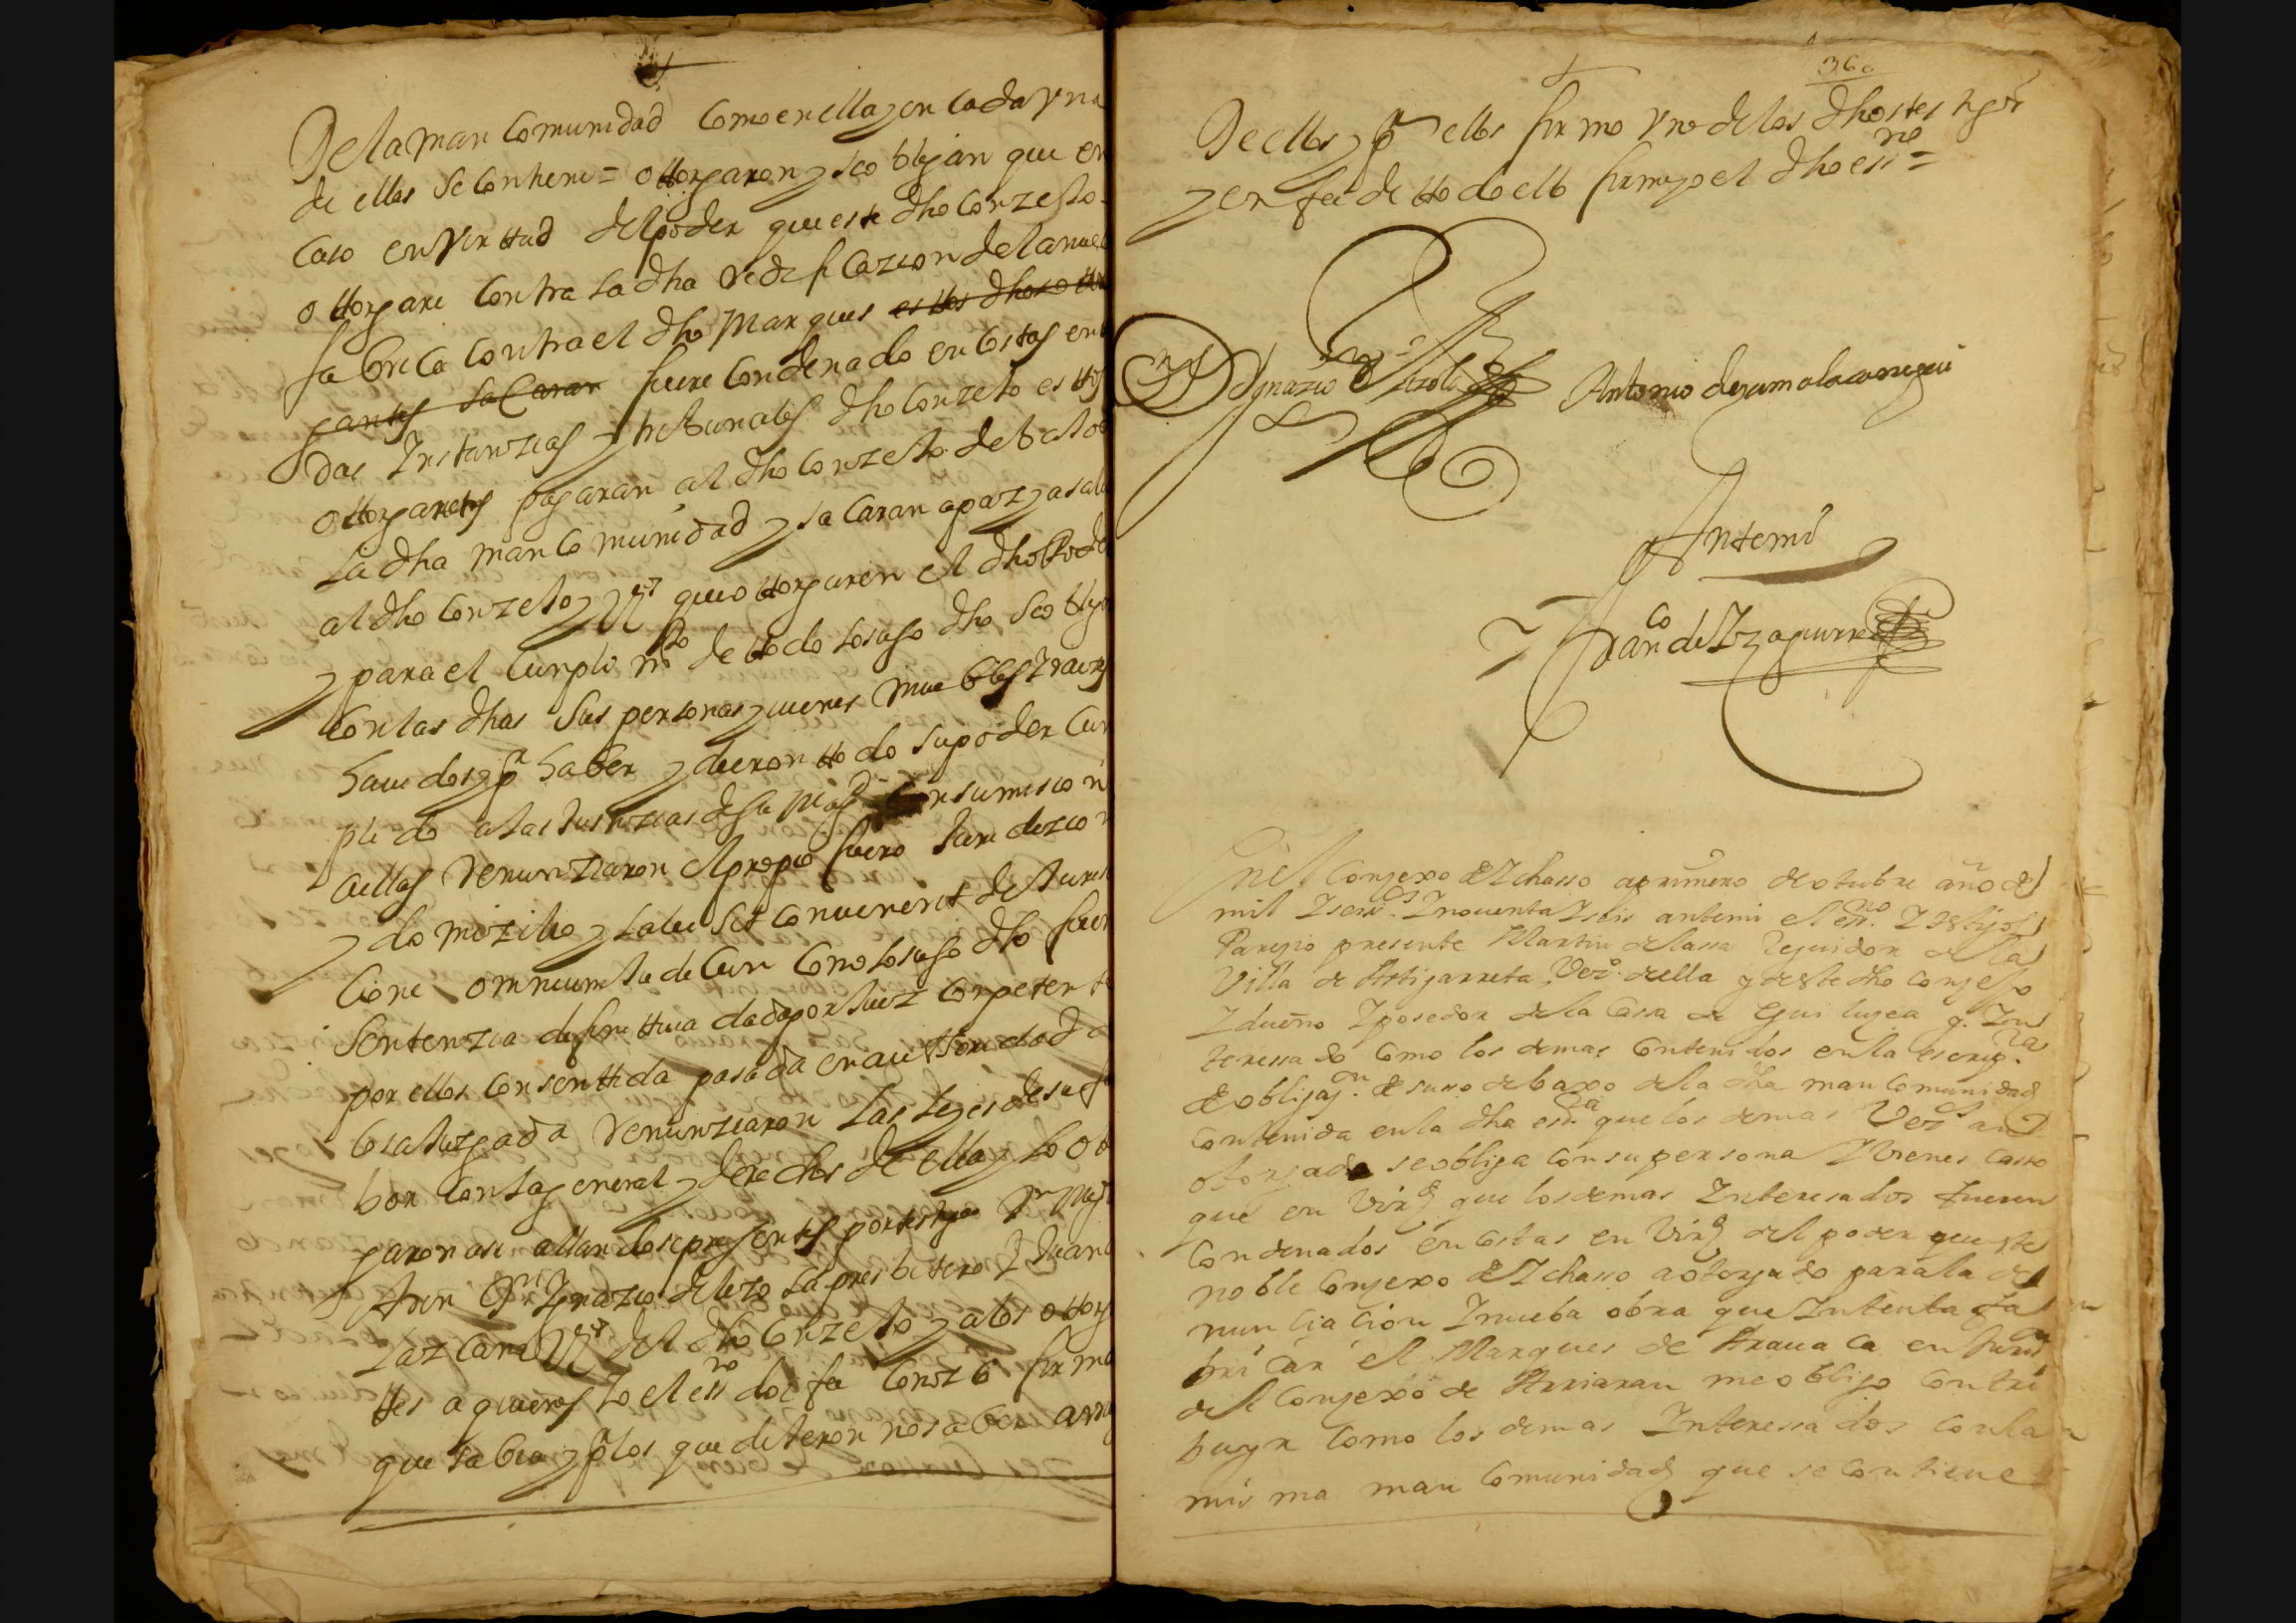 De la man comunidad como en ella y en cada vna
de ellas se contiene = ottorgaron y se obligan que en
caso en virttud del poder que este dho conzejo
ottorgare contra la dha redificazion de la nueb
fabrica contra el dho Marques esttos dhos otor
gantes sacaran fuere condenado en costas en to
das Instanzias y tribunales dho conzejo esttos
ottorgantes pagaran al dho conzejo debajo de
la dha mancomunidad y sacaran a paz y a salbo
al dho conzejo y Vos que ottorgaren el dho Poder
y para el cunplimto de ttodo lo suso dho se obligaron
con las dhas sus personas y uienes muebles y raizes
hauidos y pr haber y dieron ttodo su poder cun
plido a las Justizias de su Magd con sumision
a ellas renunziaron el propio fuero Juridizion
y domizilio y la lei sit convenerit de Juredi
cione omnium Judicun como lo suso dho fuera
sentenzia definittiua dada por Juez conpetente
por ellos consenttida pasada en auttoridad de
cosa Juzgada renunziaron las leyes de su fa
bor con la general y derechos de ella y lo otor
garon asi allandose presentes por testigos
Dn Ignazio de presbitero Y Juan de
Lazcano Vos del dho conzejo y a los ottorgan
tes a quienes Yo el essno doi fe conozco firmo
que sabia y pr los que dijeron no saber
360
De ellos y pr ellos firmo vno de los dhos testigos
y en fee de ttodo ello firme yo el dho essno =
Dn Ygnazio de
Antonio de yamalacarregui
Antemi
Franco de Yzaguirre
En el Conzexo de Ichasso a primero de otubre año de
mil Y seiscos Y nouenta Y seis antemi el essno Y testigos
Parezio presente Martin de lassa Regidor de la
Villa de Astigarreta, Vezo della y deste dho conzejo
Y dueño Y posedor de la Casa de Eguilugea q. Yn
teressado como los demas contenidos en la escripra
de obligazon de suso debaxo de la dha man comunidad
contenida en la dha esra que los demas Vezos an
otorgado se obliga con su persona Y Vienes casso
que en Vird que los demas Interesados fueren
condenados en costas en Vird del poder que este
noble Conzexo de Ichasso a otorgado para la de
nunciacion Y nueba obra que Intenta fa
bricar el Marques de Arauaca en Jurison
del Conzexo de Arriaran me obligo contri
buyr como los demas Interessados con la
misma man comunidad que se contiene